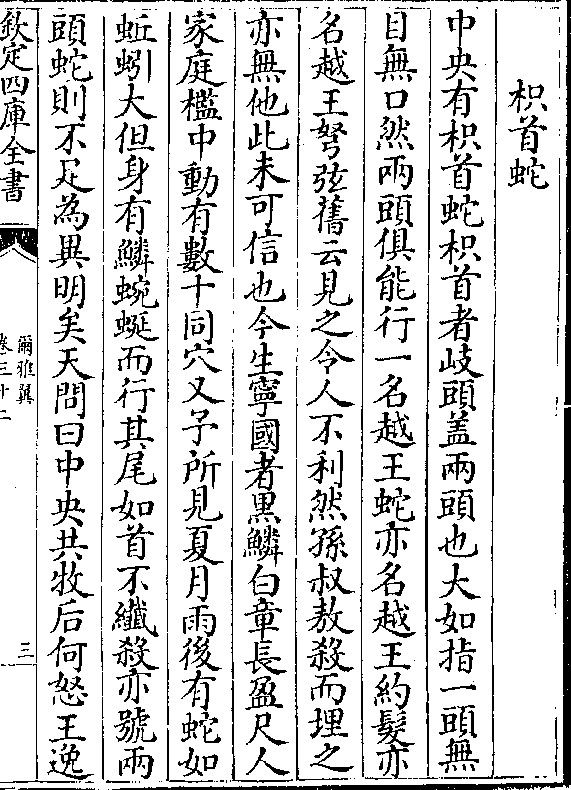 枳首蛇
中央有枳首蛇枳首者岐頭盖兩頭也大如指一頭無
目無口然兩頭俱能行一名越王蛇亦名越王約髮亦
名越王弩弦舊云見之令人不利然孫叔敖殺而埋之
亦無他此未可信也今生寧國者黒鱗白章長盈尺人
家庭檻中動有數十同穴又予所見夏月雨後有蛇如
蚯蚓大但身有鱗蜿蜒而行其尾如首不纖殺亦號兩
頭蛇則不足為異明矣天問曰中央共牧后何怒王逸
欽定四庫全書
爾雅翼
卷三十二
三